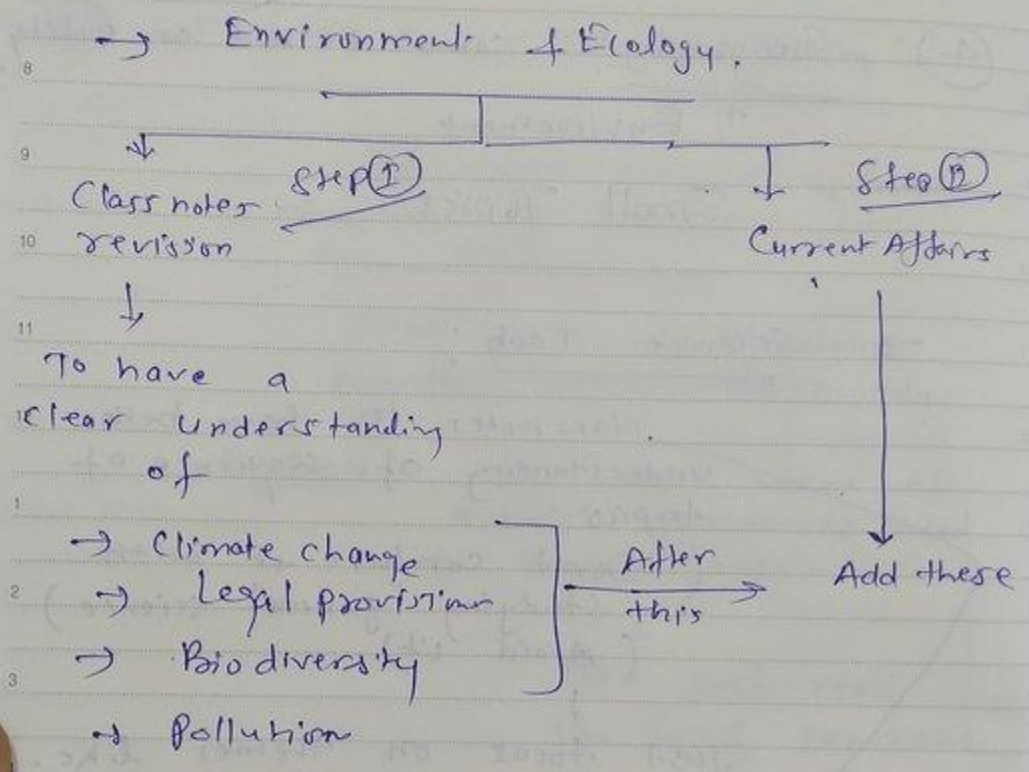 → Environment + Ecology.
8
9
Step ①
Step Ⓑ
Class notes
revission
10
Current Affairs
11
To have a
clear understanding
of
1
→ Climate change
2
→ Legal provisions
→ Biodiversity
3
→ Pollution
After
this
Add these